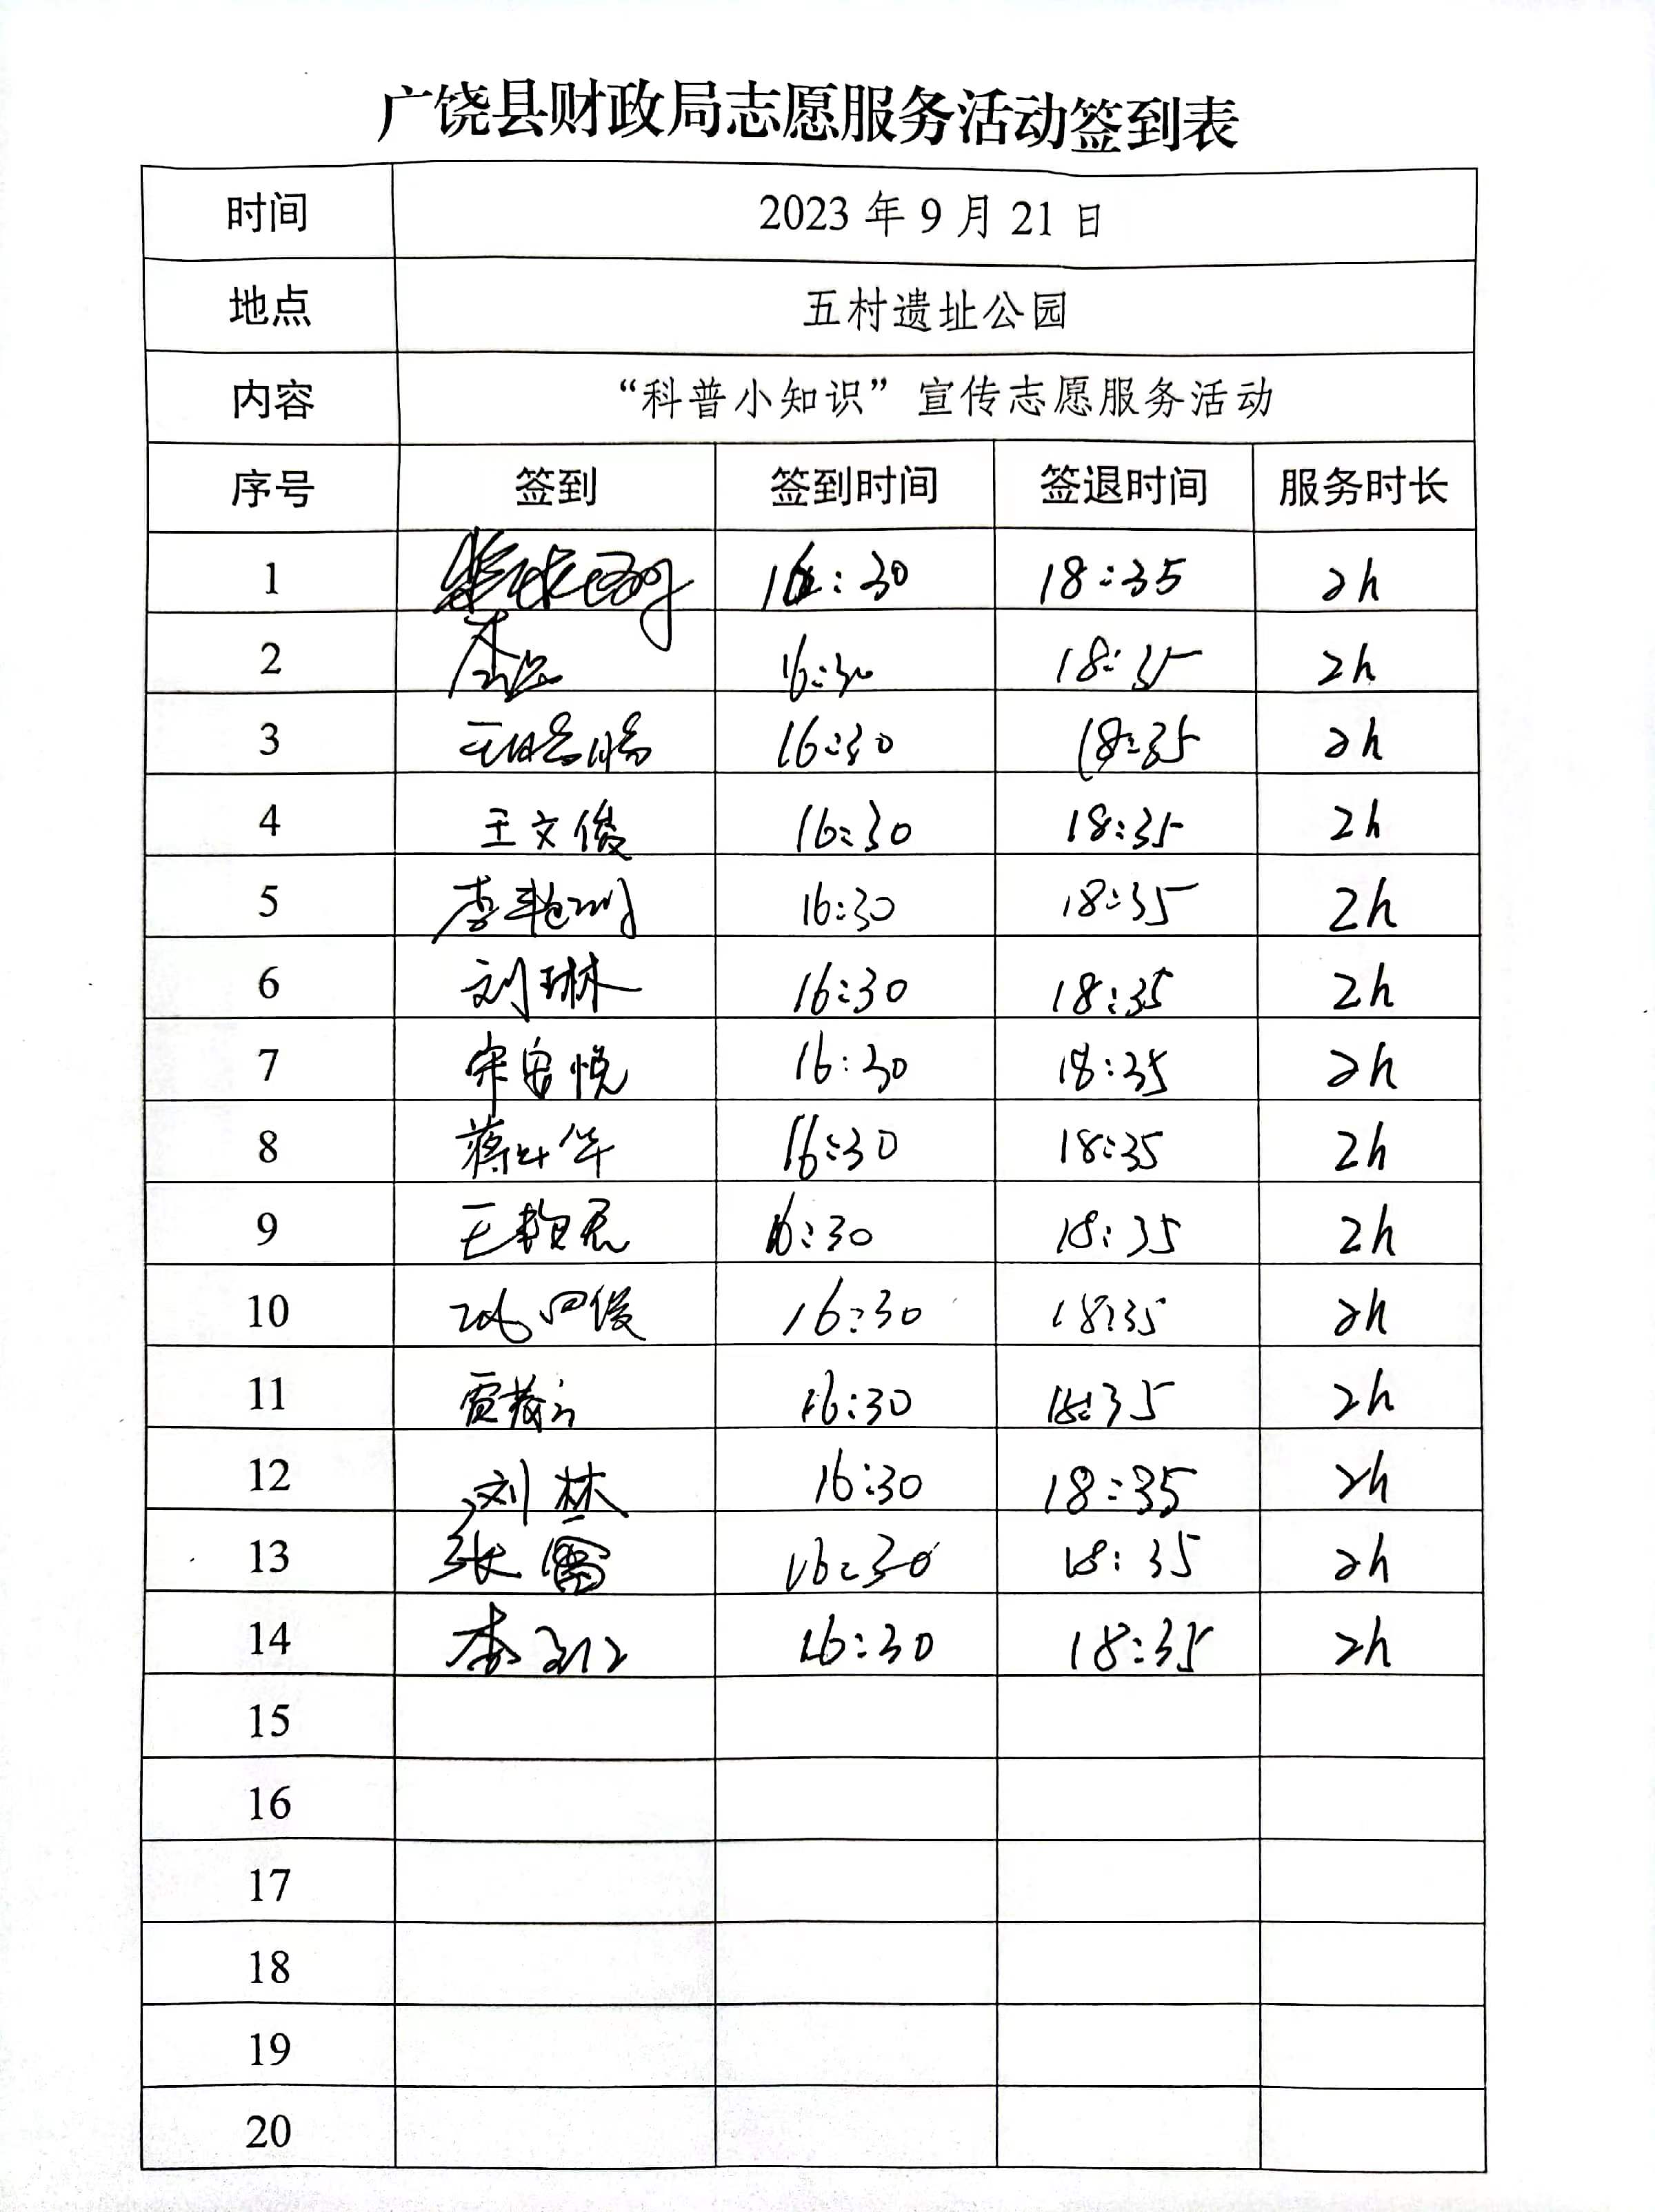 广饶县财政局志愿服务活动签到表
时间 2023年9月21日
地点 五村遗址公园
内容 “科普小知识”宣传志愿服务活动
序号 签到 签到时间 签退时间 服务时长
1 16:30 18:35 2h
2 16:30 18:35 2h
3 16:30 18:35 2h
4 王文俊 16:30 18:35 2h
5 16:30 18:35 2h
6 刘琳 16:30 18:35 2h
7 16:30 18:35 2h
8 16:30 18:35 2h
9 16:30 18:35 2h
10 16:30 18:35 2h
11 16:30 18:35 2h
12 刘林 16:30 18:35 2h
13 张雷 16:30 18:35 2h
14 16:30 18:35 2h
15
16
17
18
19
20